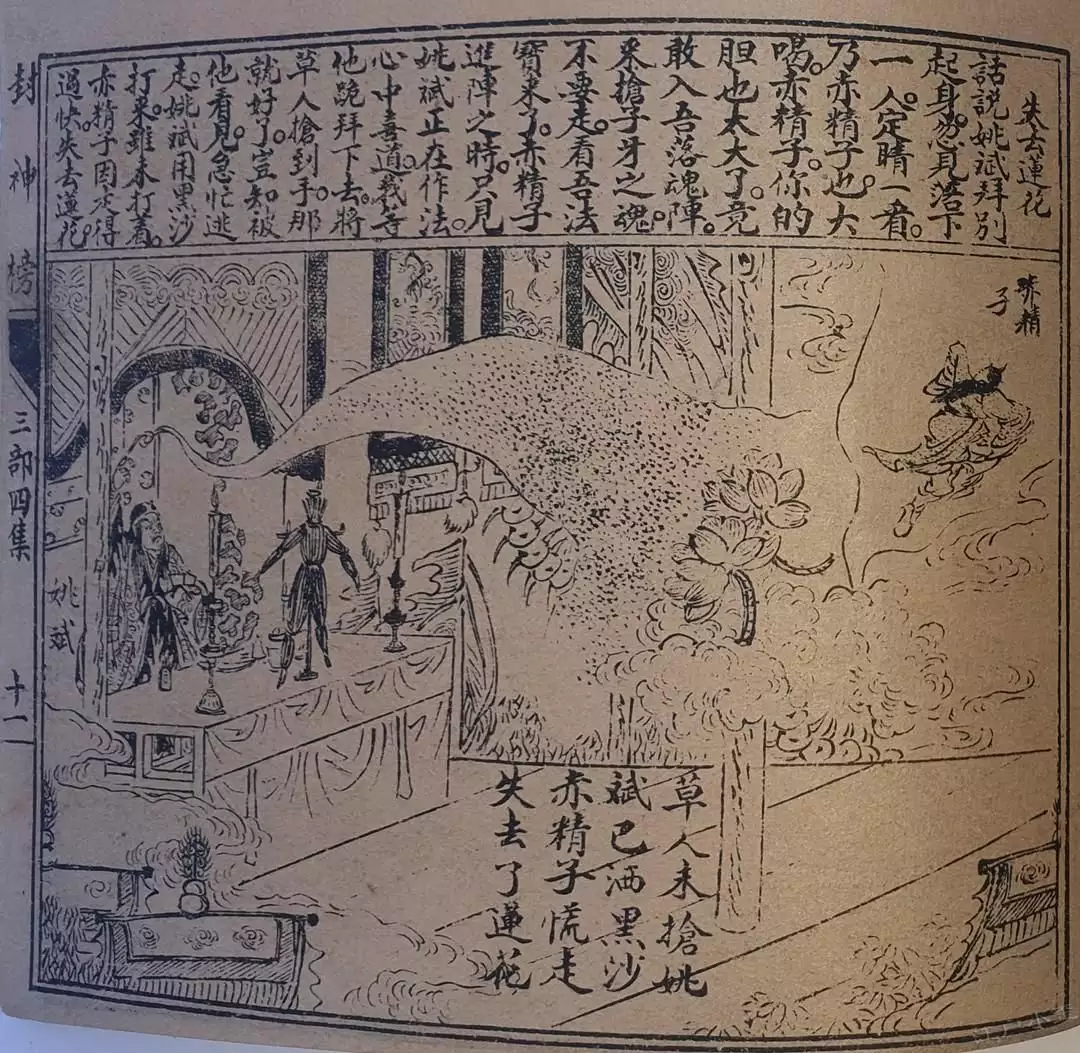 失去蓮花
話說姚斌拜別
起身。忽見落下
一人。定睛一看。
乃赤精子也大
喝。赤精子。你的
胆也太大了。竟
敢入吾落魂陣。
来搶子牙之魂。
不要走。看吾法
寳来了。赤精子
進陣之時。只見
姚斌正在作法。
心中喜道。我等
他跪拜下去。將
草人搶到手。那
就好了。豈知被
他看見。急忙逃
走。姚斌用黑沙
打来。雖未打着。
赤精子因走得
過快。失去蓮花。
赤精子
姚斌
草人未搶姚
斌已洒黑沙
赤精子慌走
失去了蓮花
封神榜
三部四集
十一